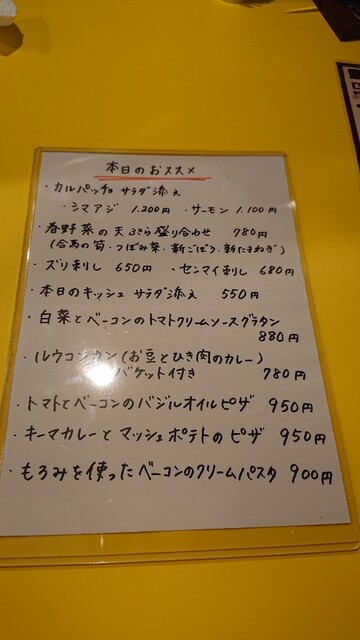 本日のおススメ
・カルパッチョ サラダ添え
・シマアジ 1.200円 ・サーモン 1.100円
・春野菜の天ぷら盛り合わせ 780円
(合馬の筍・つぼみ菜・新ごぼう・新たまねぎ)
・ズリ刺し 650円 ・センマイ刺し 680円
・本日のキッシュ サラダ添え 550円
・白菜とベーコンのトマトクリームソースグラタン
880円
・ルウコンカン(お豆とひき肉のカレー)
バケット付き 780円
・トマトとベーコンのバジルオイルピザ 950円
・キーマカレーとマッシュポテトのピザ 950円
・もろみを使ったベーコンのクリームパスタ 900円